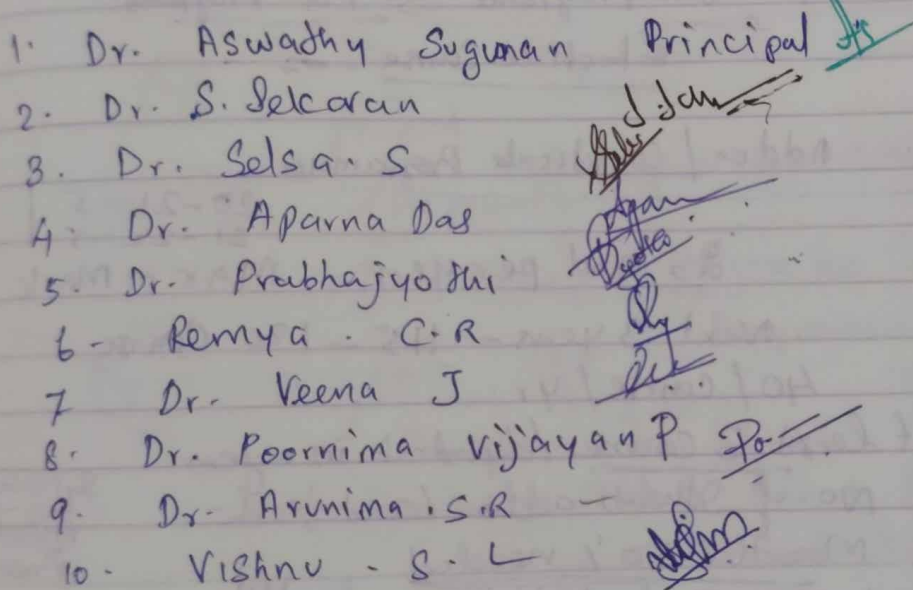 1. Dr. Aswathy Sugunan Principal
2. Dr. S. Sekaran
3. Dr. Selsa. S
4. Dr. Aparna Das
5. Dr. Prabhajyothi
6 - Remya . C.R
7 Dr. Veena J
8. Dr. Poornima Vijayan P
9. Dr. Arunima .S.R -
10 - Vishnu - S. L